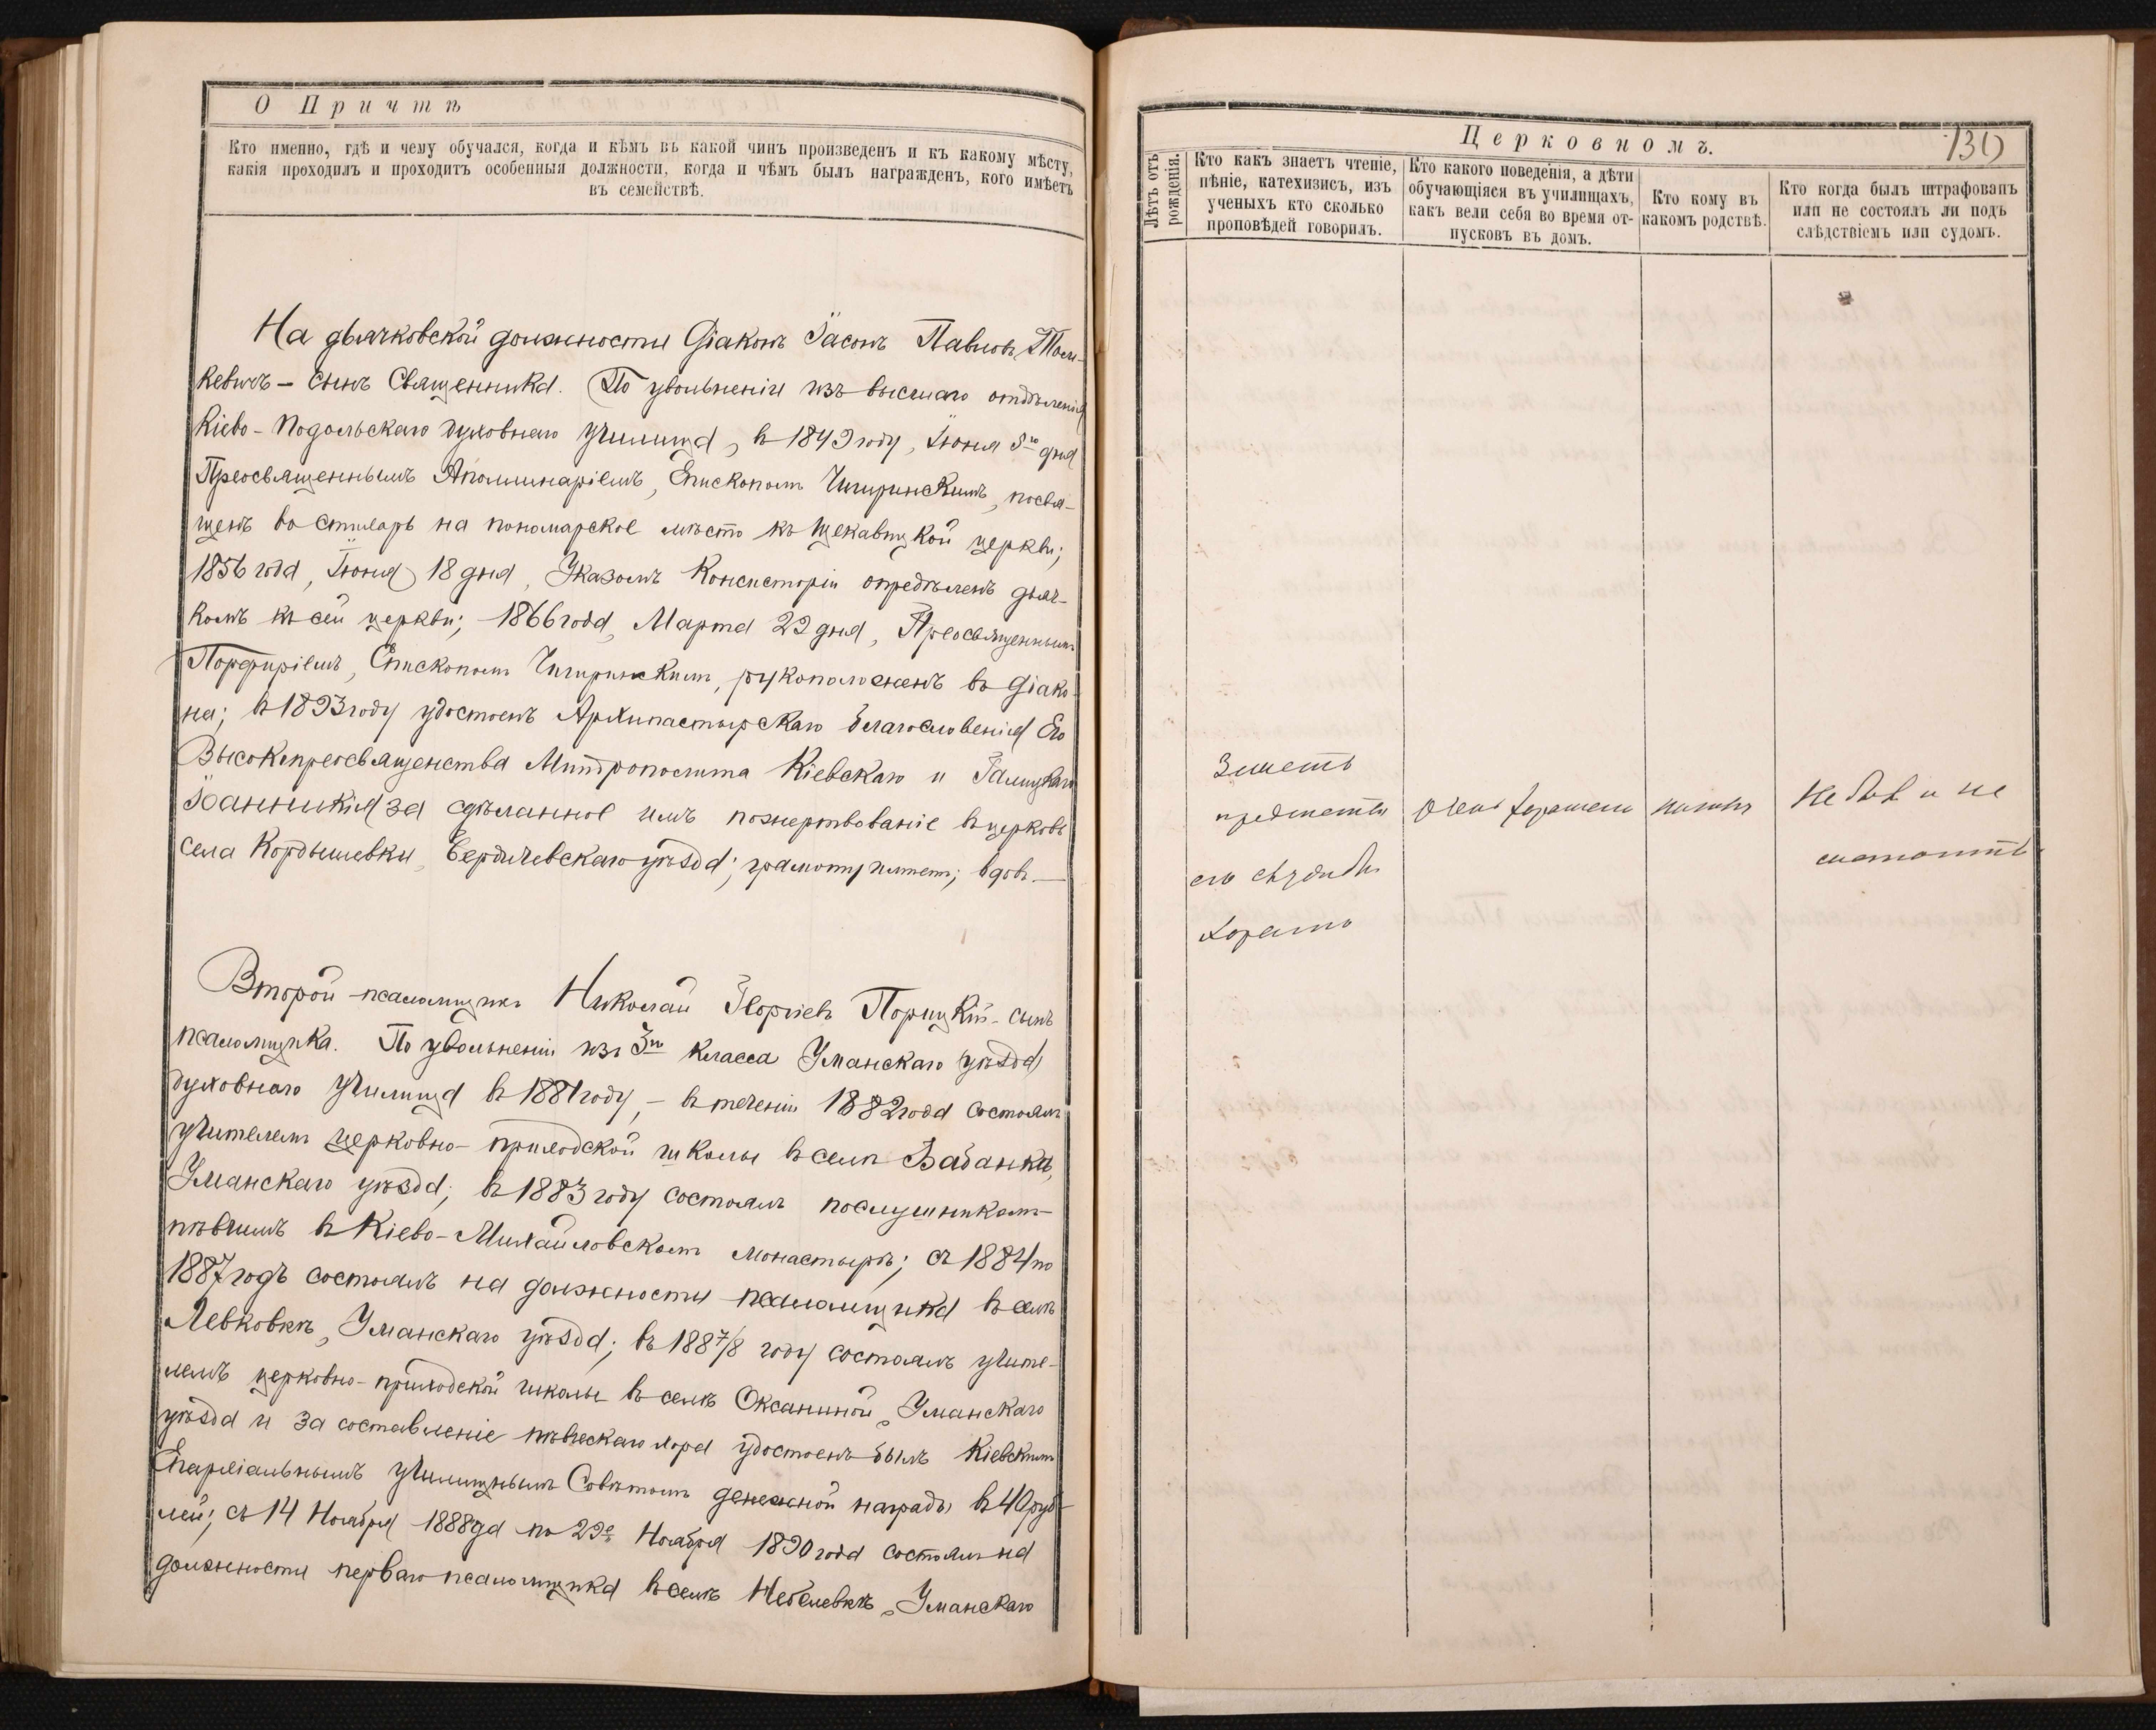 О Причтѣ
Кто именно, гдѣ и чему обучался, когда и кѣмъ въ какой чинъ произведенъ и къ какому мѣсту,
какія проходилъ и проходитъ особенныя должности, когда и чѣмъ былъ награжденъ, кого имѣетъ
въ семействѣ.
На дьячковской должности Діаконъ Іасонъ Павловъ
кевичъ – сынъ Священника. По увольненіи изъ высшаго отдѣленія
Кіево-Подольскаго духовнаго училища, въ 1849 году, Іюня 5го дня
Преосвященнымъ Аполлинаріемъ, Епископомъ Чигиринскимъ, посвя-
щенъ въ стихарь на пономарское мѣсто къ Щекавицкой церкви;
1856 года, Іюня 18 дня, Указомъ Консисторіи опредѣленъ дьяч-
комъ къ сей церкви; 1866 года, Марта 29 дня, Преосвященнымъ
Порфиріемъ, Епископомъ Чигиринскимъ, рукоположенъ въ діако-
на; въ 1893 году удостоенъ Архипастырскаго благословенія Его
Высокопреосвященства Митрополита Кіевскаго и Галицкаго
Іоанникія за сдѣланное имъ пожертвованіе въ церковь
села Кордышевки, Бердичевскаго уѣзда; грамоту имѣетъ; вдовъ.–
Второй псаломщикъ Николай Георгіевъ Порицкій – сынъ
псаломщика. По увольненіи изъ 3го класса Уманскаго уѣзда
духовнаго училища въ 1881 году, – въ теченіи 1882 года состоялъ
учителемъ церковно-приходской школы въ селѣ Бабанкѣ,
Уманскаго уѣзда; въ 1883 году состоялъ послушникомъ-
пѣвчимъ въ Кіево-Михайловскомъ монастырѣ; съ 1884 по
1887 годъ состоялъ на должности псаломщика въ селѣ
Левковкѣ, Уманскаго уѣзда; въ 1887/8 году состоялъ учите-
лемъ церковно-приходской школы въ селѣ Оксаниной, Уманскаго
уѣзда и за составленіе пѣвческаго хора удостоенъ былъ Кіевскимъ
Епархіальнымъ училищнымъ Совѣтомъ денежной награды въ 40 руб-
лей; съ 14 Ноября 1888 года по 29е Ноября 1890 года состоялъ на
должности перваго псаломщика въ селѣ Небелевкѣ, Уманскаго
Церковномъ. 130
Лѣтъ отъ
рожденія.
Кто какъ знаетъ чтеніе,
пѣніе, катехизисъ, изъ
ученыхъ кто сколько
проповѣдей говорилъ.
Кто какого поведенія, а дѣти
обучающіяся въ училищахъ,
какъ вели себя во время от-
пусковъ въ домъ.
Кто кому въ
какомъ родствѣ.
Кто когда былъ штрафованъ
или не состоялъ ли подъ
слѣдствіемъ или судомъ.
Знаетъ
предметы
его службы
хорошо
Очень хорошаго
Не былъ и не
состоитъ